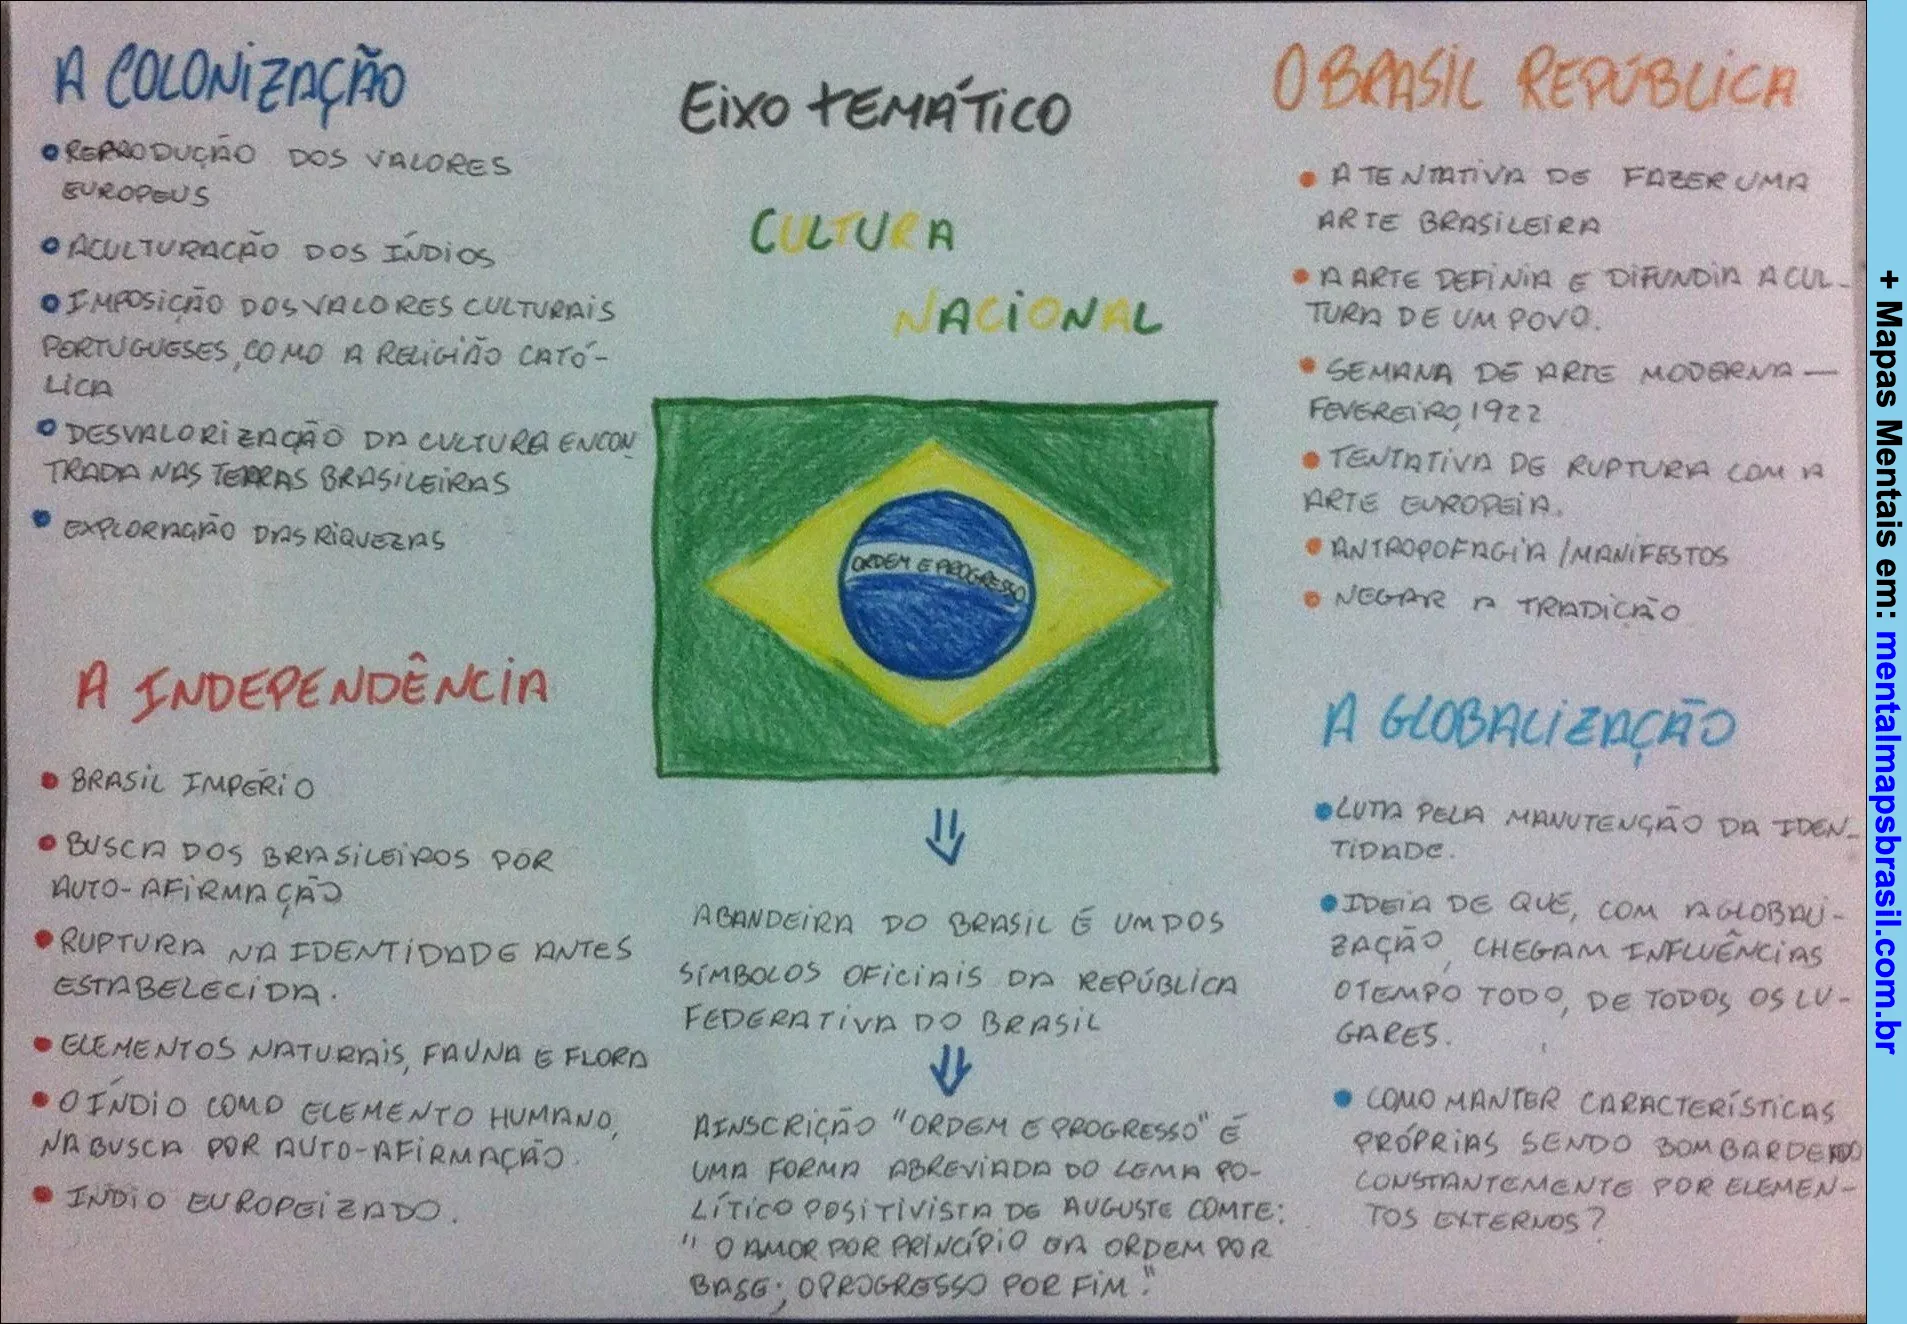 A COLONIZAÇÃO
• REPRODUÇÃO DOS VALORES
EUROPEUS
• ACULTURAÇÃO DOS ÍNDIOS
• IMPOSIÇÃO DOS VALORES CULTURAIS
PORTUGUESES, COMO A RELIGIÃO CATÓ-
LICA
• DESVALORIZAÇÃO DA CULTURA ENCON
TRADA NAS TERRAS BRASILEIRAS
• EXPLORAÇÃO DAS RIQUEZAS
A INDEPENDÊNCIA
• BRASIL IMPÉRIO
• BUSCA DOS BRASILEIROS POR
AUTO-AFIRMAÇÃO
• RUPTURA NA IDENTIDADE ANTES
ESTABELECIDA.
• ELEMENTOS NATURAIS, FAUNA E FLORA
• O ÍNDIO COMO ELEMENTO HUMANO,
NA BUSCA POR AUTO-AFIRMAÇÃO.
• ÍNDIO EUROPEIZADO.
EIXO TEMÁTICO
CULTURA
NACIONAL
ORDEM E PROGRESSO
A BANDEIRA DO BRASIL É UM DOS
SÍMBOLOS OFICIAIS DA REPÚBLICA
FEDERATIVA DO BRASIL
A INSCRIÇÃO "ORDEM E PROGRESSO" É
UMA FORMA ABREVIADA DO LEMA PO-
LÍTICO POSITIVISTA DE AUGUSTE COMTE:
"O AMOR POR PRINCÍPIO E A ORDEM POR
BASE; O PROGRESSO POR FIM."
O BRASIL REPÚBLICA
• A TENTATIVA DE FAZER UMA
ARTE BRASILEIRA
• A ARTE DEFINIA E DIFUNDIA A CUL-
TURA DE UM POVO.
• SEMANA DE ARTE MODERNA —
FEVEREIRO, 1922
• TENTATIVA DE RUPTURA COM A
ARTE EUROPEIA.
• ANTROPOFAGIA / MANIFESTOS
• NEGAR A TRADIÇÃO
A GLOBALIZAÇÃO
• LUTA PELA MANUTENÇÃO DA IDEN-
TIDADE.
• IDEIA DE QUE, COM A GLOBALI-
ZAÇÃO, CHEGAM INFLUÊNCIAS
O TEMPO TODO, DE TODOS OS LU-
GARES.
• COMO MANTER CARACTERÍSTICAS
PRÓPRIAS SENDO BOMBARDEADO
CONSTANTEMENTE POR ELEMEN-
TOS EXTERNOS?
+ Mapas Mentais em: mentalmapsbrasil.com.br